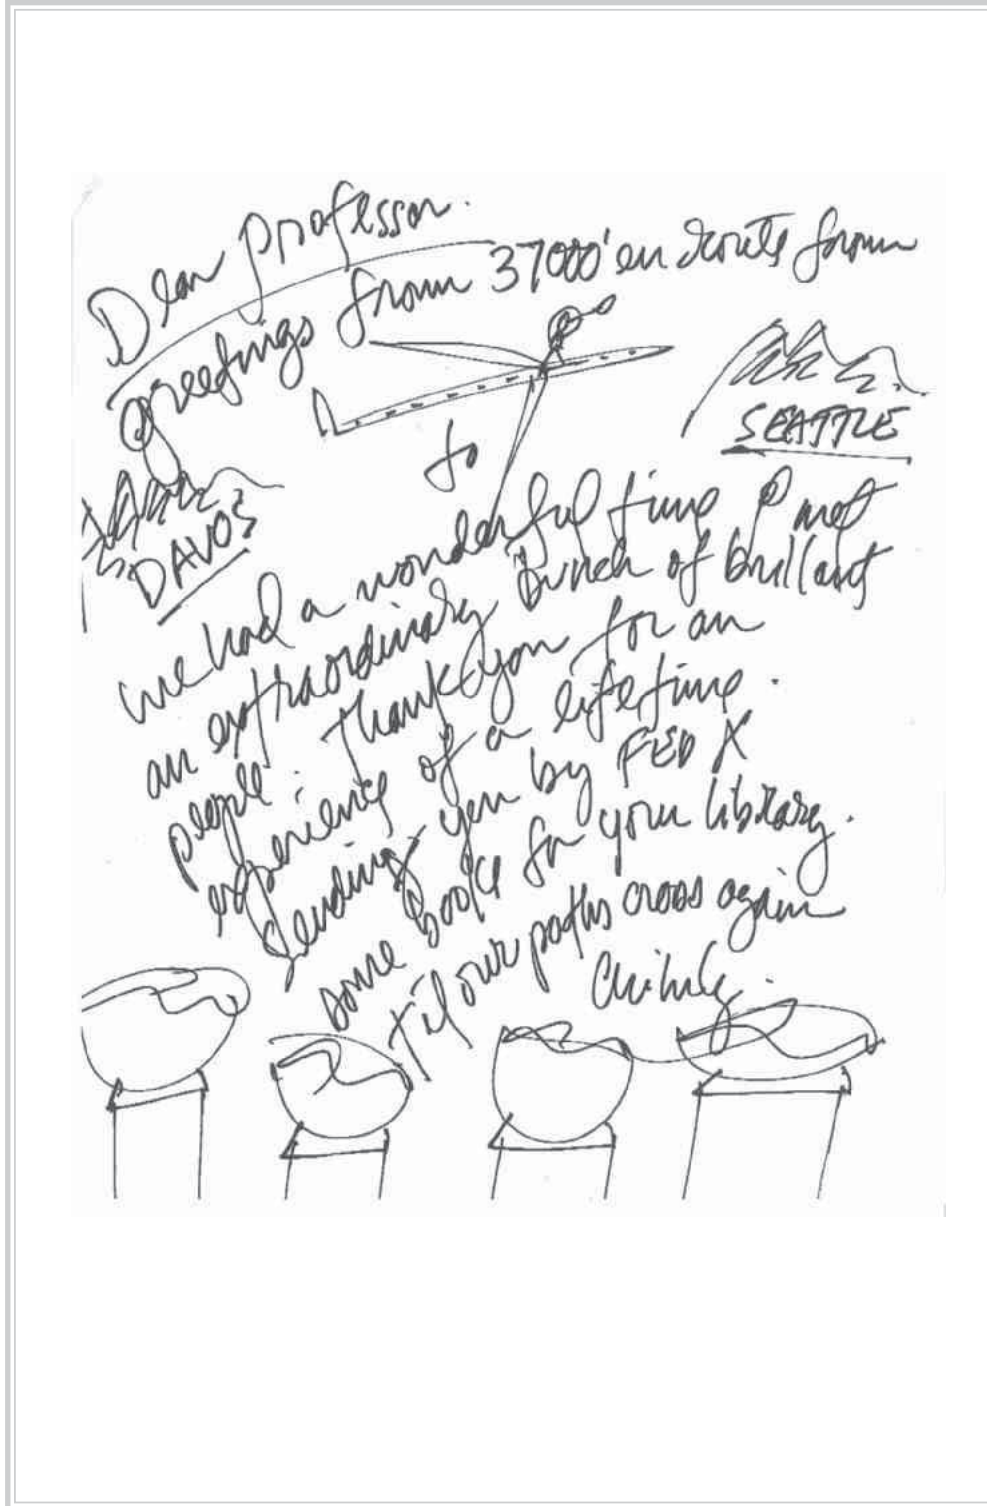 Dear Professor.
greetings from 37000' en route from
SEATTLE
to
DAVOS
we had a wonderful time & met
an extraordinary bunch of brillant
people. Thank you for an
experience of a lifetime.
Sending you by FED X
some books for your library.
til our paths cross again
Chihuly.